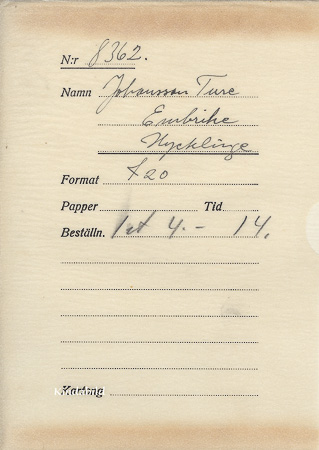 N:r 8362.
Namn Johansson Ture
Embrike
Hycklinge
Format
Papper Tid
Beställn. 1 st 4.- 14.
Kartong